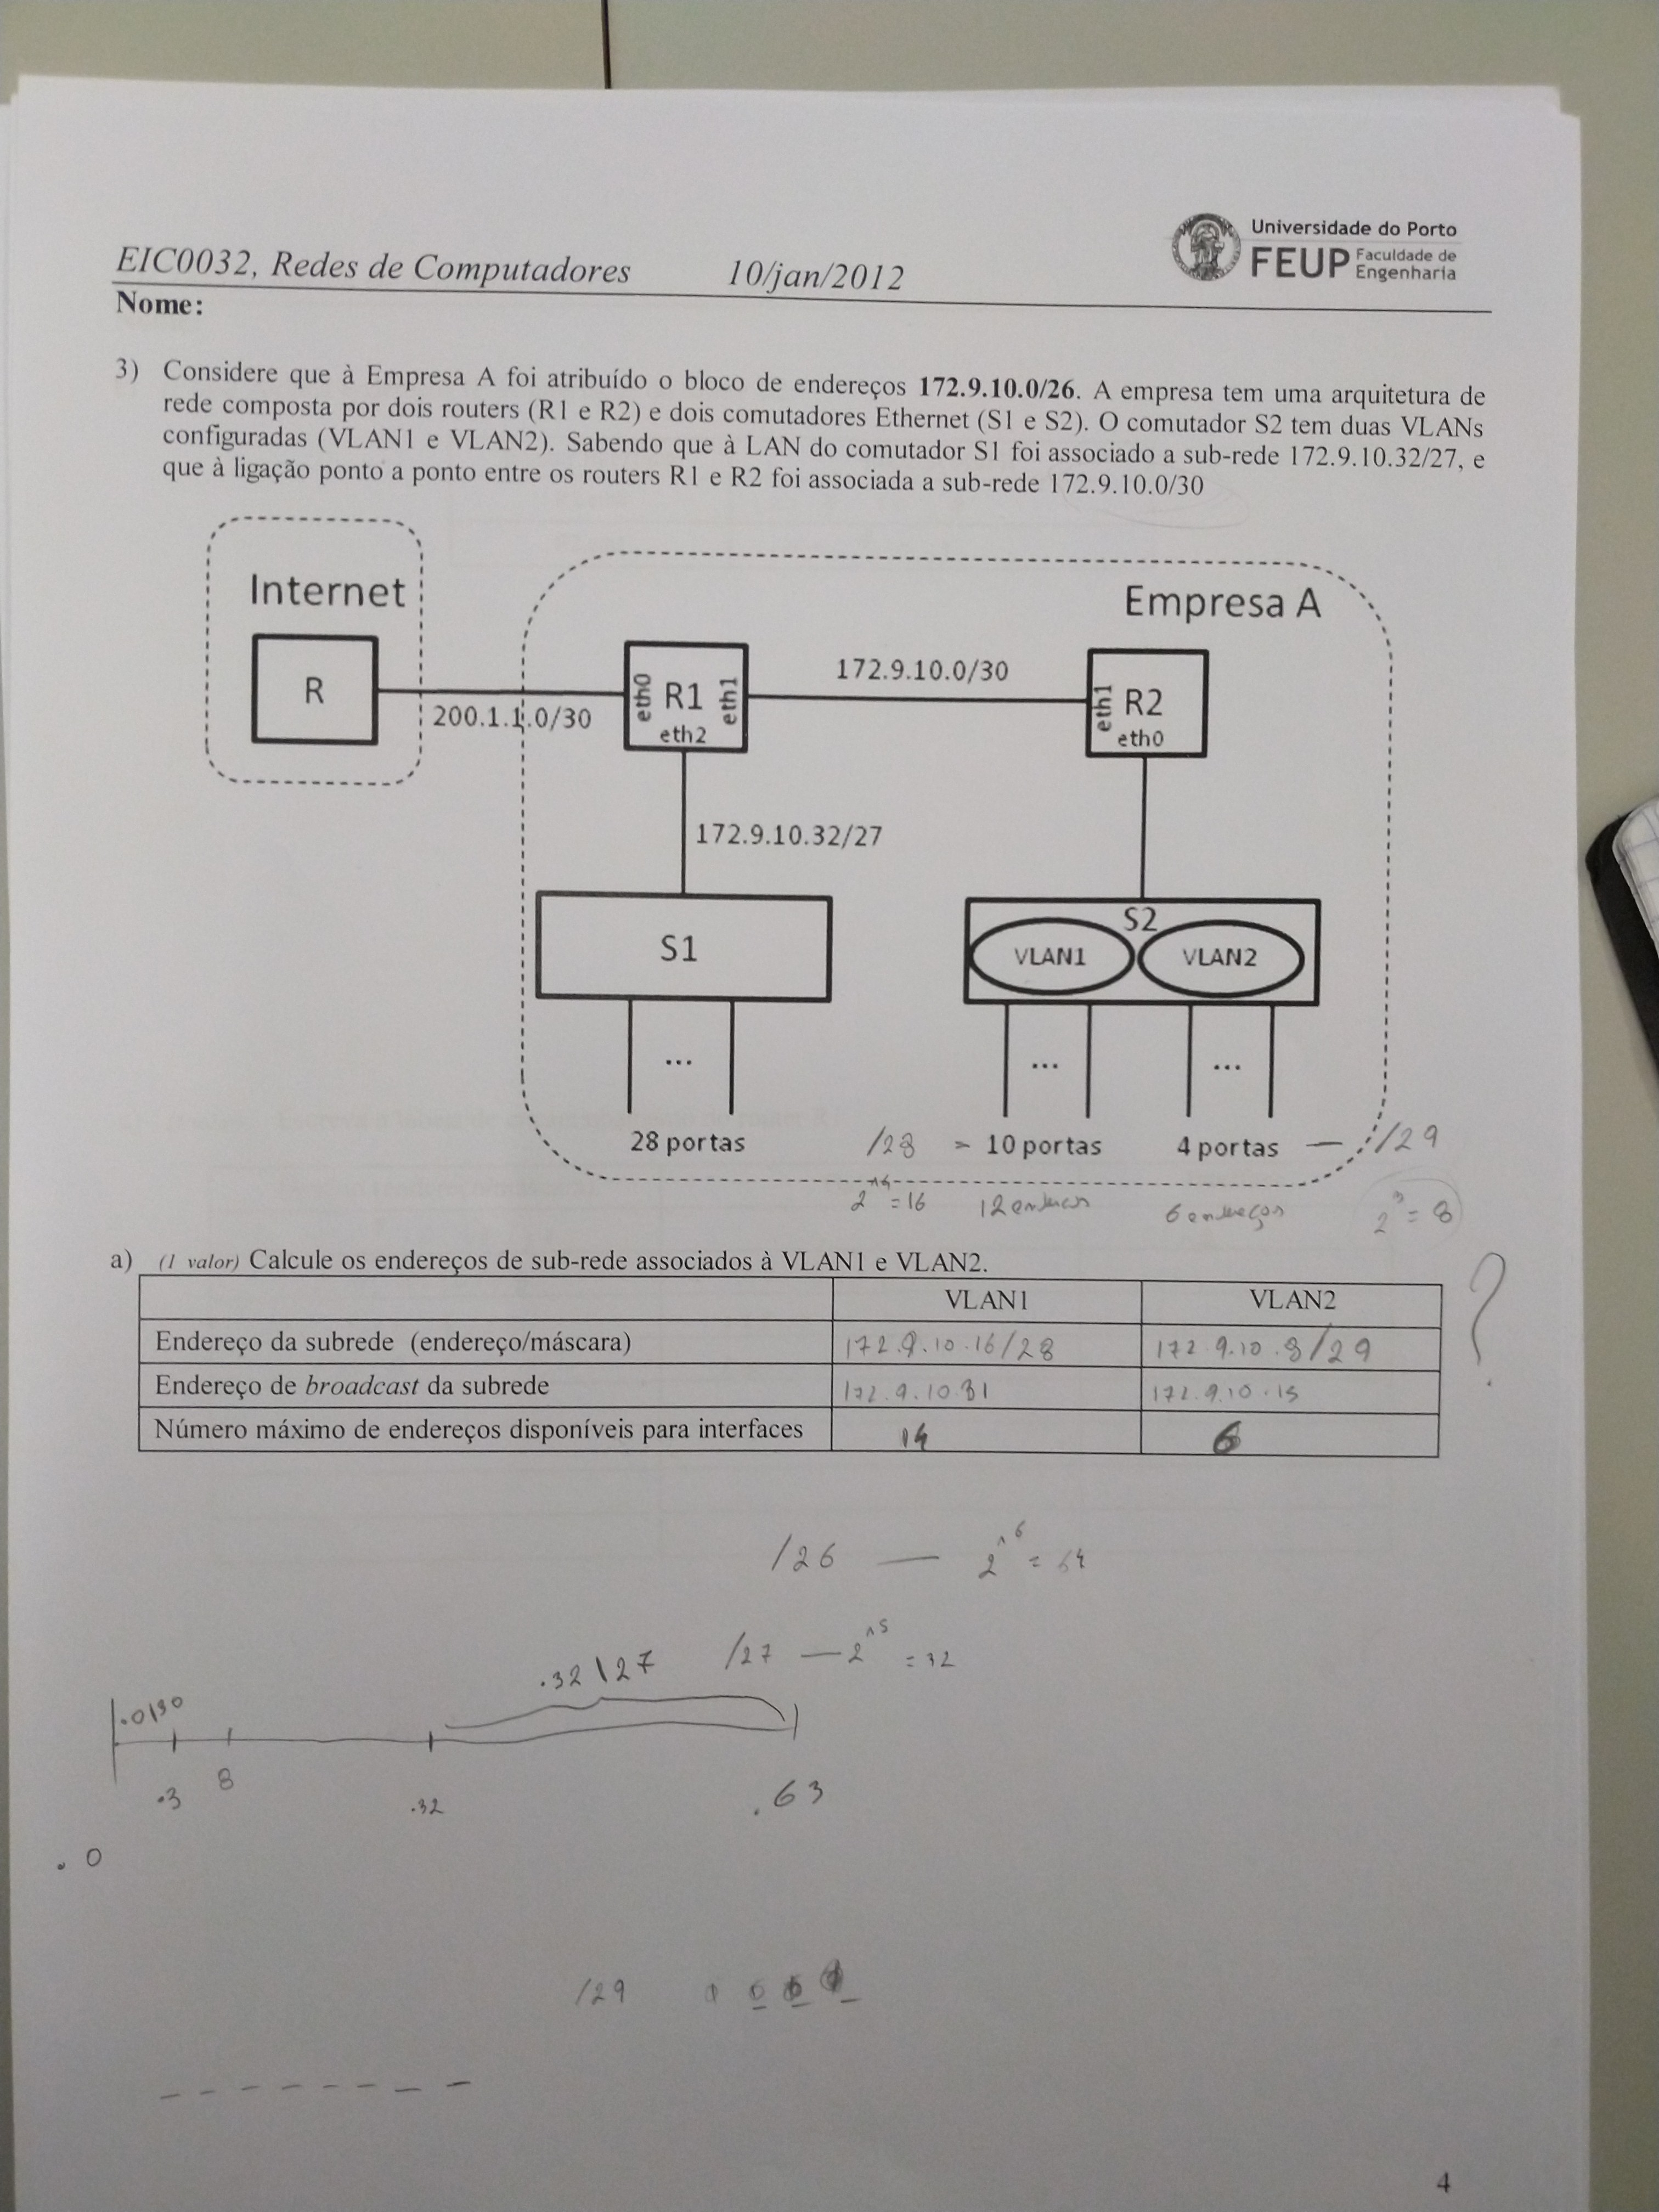 Universidade do Porto
FEUP Faculdade de Engenharia
EIC0032, Redes de Computadores 10/jan/2012
Nome:
3) Considere que à Empresa A foi atribuído o bloco de endereços 172.9.10.0/26. A empresa tem uma arquitetura de
rede composta por dois routers (R1 e R2) e dois comutadores Ethernet (S1 e S2). O comutador S2 tem duas VLANs
configuradas (VLAN1 e VLAN2). Sabendo que à LAN do comutador S1 foi associado a sub-rede 172.9.10.32/27, e
que à ligação ponto a ponto entre os routers R1 e R2 foi associada a sub-rede 172.9.10.0/30
Internet
Empresa A
R
200.1.1.0/30
eth0 R1 eth1
eth2
172.9.10.0/30
eth1 R2
eth0
172.9.10.32/27
S1
S2
VLAN1 VLAN2
... ... ...
28 portas /28 - 10 portas 4 portas — /29
2^4 = 16 12 6 endereços 2^3 = 8
a) (1 valor) Calcule os endereços de sub-rede associados à VLAN1 e VLAN2. ?
VLAN1 VLAN2
Endereço da subrede (endereço/máscara) 172.9.10.16/28 172.9.10.8/29
Endereço de broadcast da subrede 172.9.10.31 172.9.10.15
Número máximo de endereços disponíveis para interfaces 14 6
/26 — 2^6 = 64
.32\27 /27 — 2^5 = 32
.0\30
.3 8 .32 .63
.0
/29
4